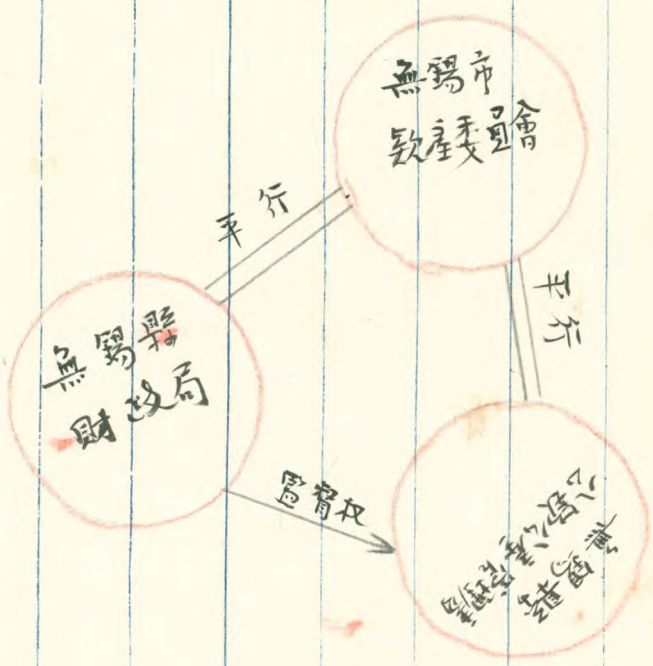 無錫市
款產委員會
平行
平行
無錫縣
財政局
監督权
無錫縣
公款公產管理處